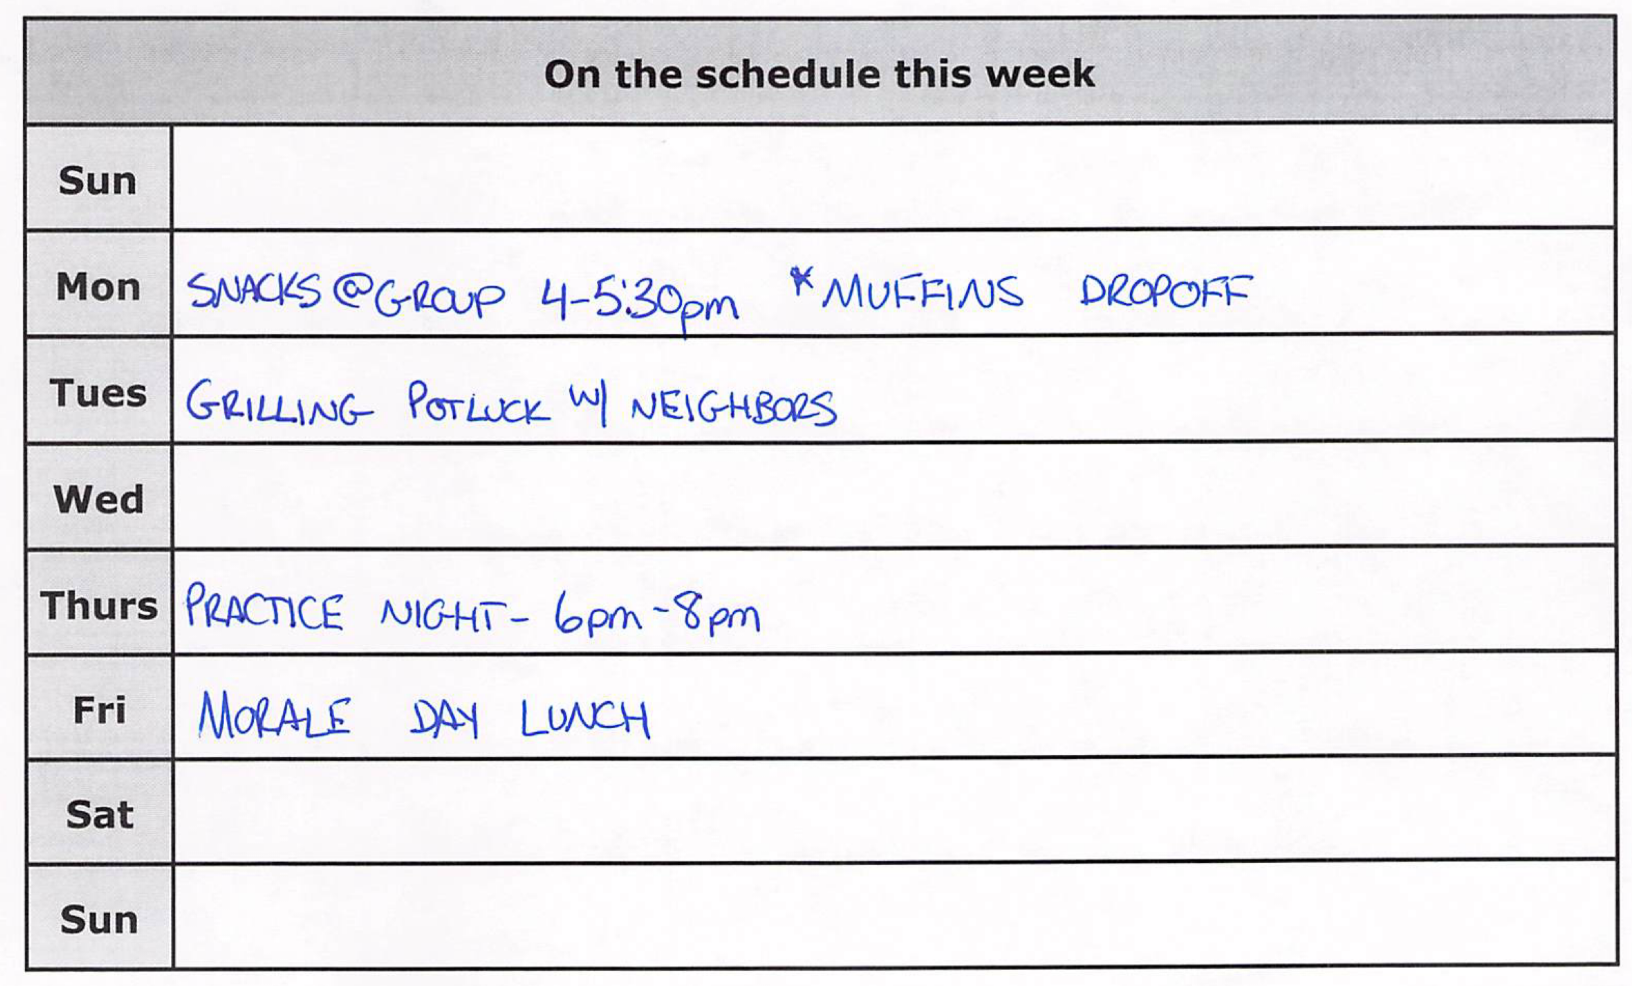 On the schedule this week
Sun
Mon SNACKS @ GROUP 4-5:30pm *MUFFINS DROPOFF
Tues GRILLING POTLUCK W/ NEIGHBORS
Wed
Thurs PRACTICE NIGHT - 6pm-8pm
Fri MORALE DAY LUNCH
Sat
Sun